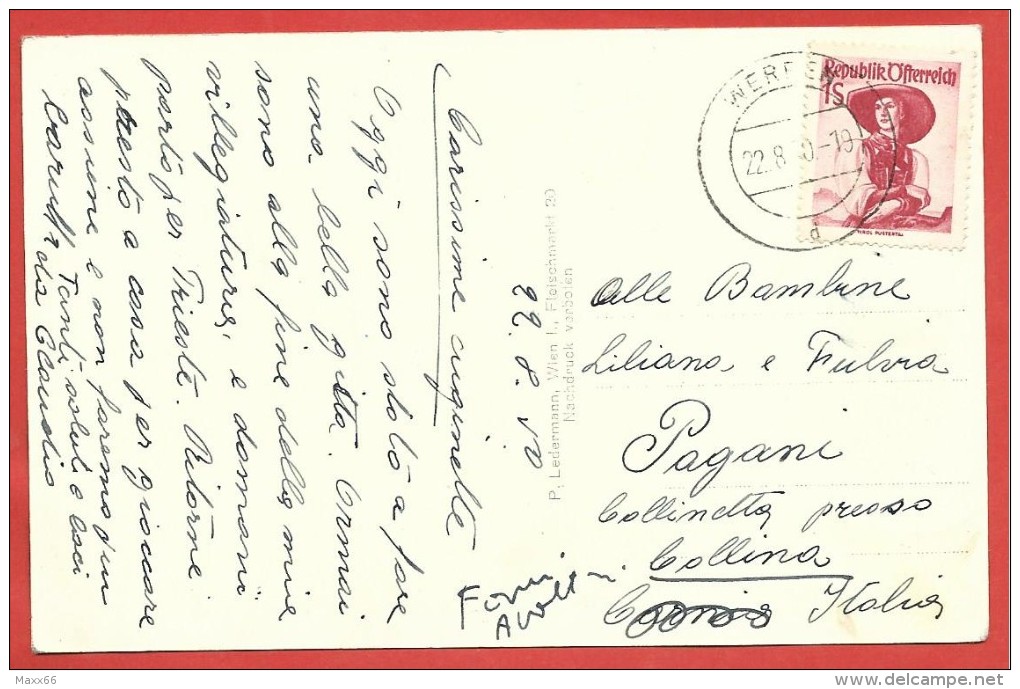 Carissime cuginette
Oggi sono stato a fare
una bella gita. Ormai
sono alla fine della mia
villeggiatura, e domani
parto per Trieste. Ritorno
presto a casa per giocare
assieme e non faremo più
Tanti saluti e baci
da Claudio
22.8.50
P. Ledermann, Wien I., Fleischmarkt 20
Nachdruck verboten
WERFEN
22.8.50.-19
a
Republik Österreich
1S
TIROL PUSTERTAL
alle Bambine
Liliana e Fulvia
Pagani
Collinetta presso
Collina
Carnia Italia
Forni
Avoltri
Maxx66
delcampe.net